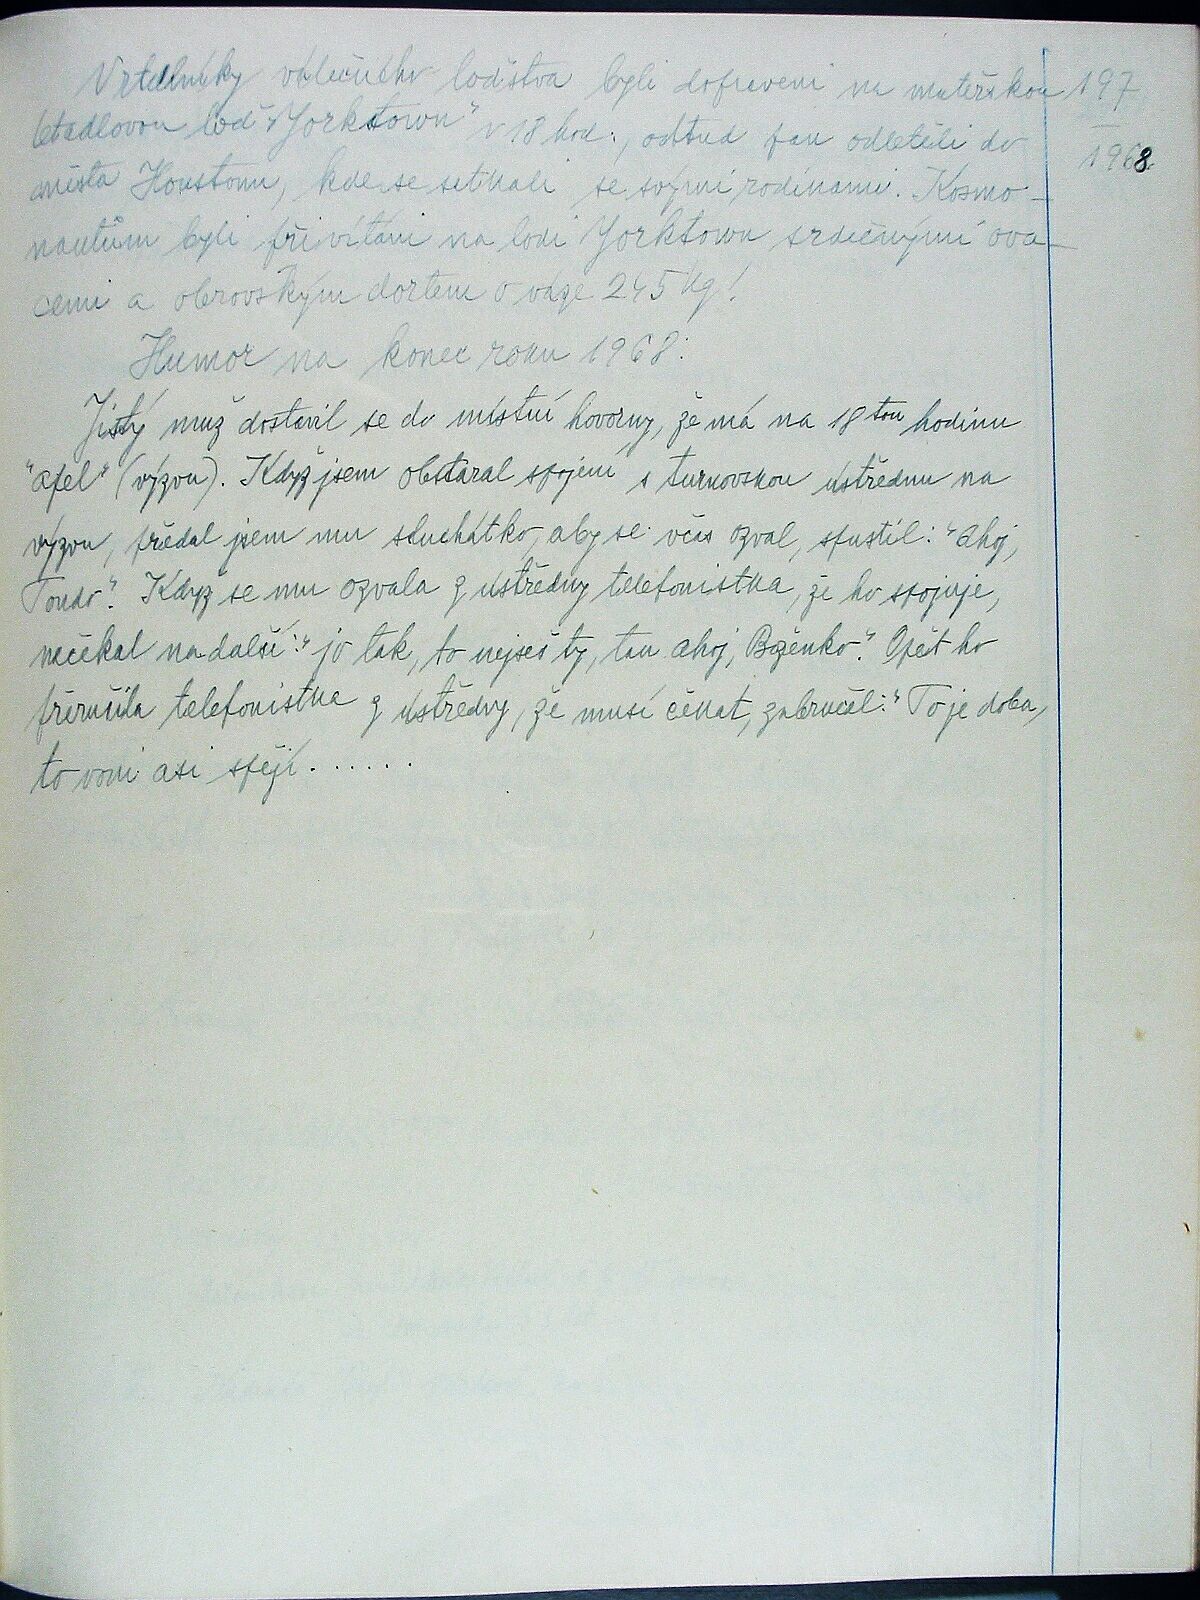 Vrtulníky válečného loďstva byli dopraveni na mateřskou 197
letadlovou loď "Yorktown" v 18 hod., odtud pak odletěli do
města Houstonu, kde se setkali se svými rodinami. Kosmo- 1968.
nautům byli přivítáni na lodi Yorktown srdečnými ova-
cemi a obrovským dortem o váze 245 kg!
Humor na konec roku 1968:
Jistý muž dostavil se do místní hovorny, že má na 18 tou hodinu
"apel" (výzvu). Když jsem obstaral spojení s turnovskou ústřednu na
výzvu, předal jsem mu sluchátko, aby se včas ozval, spustil: "Ahoj,
Tondo". Když se mu ozvala z ústředny telefonistka, že ho spojuje,
nečekal na další: "jo tak, to nejseš ty, tak ahoj, Boženko". Opět ho
přerušila telefonistka z ústředny, že musí čekat, zabručel: "To je doba,
to voni asi spějí......